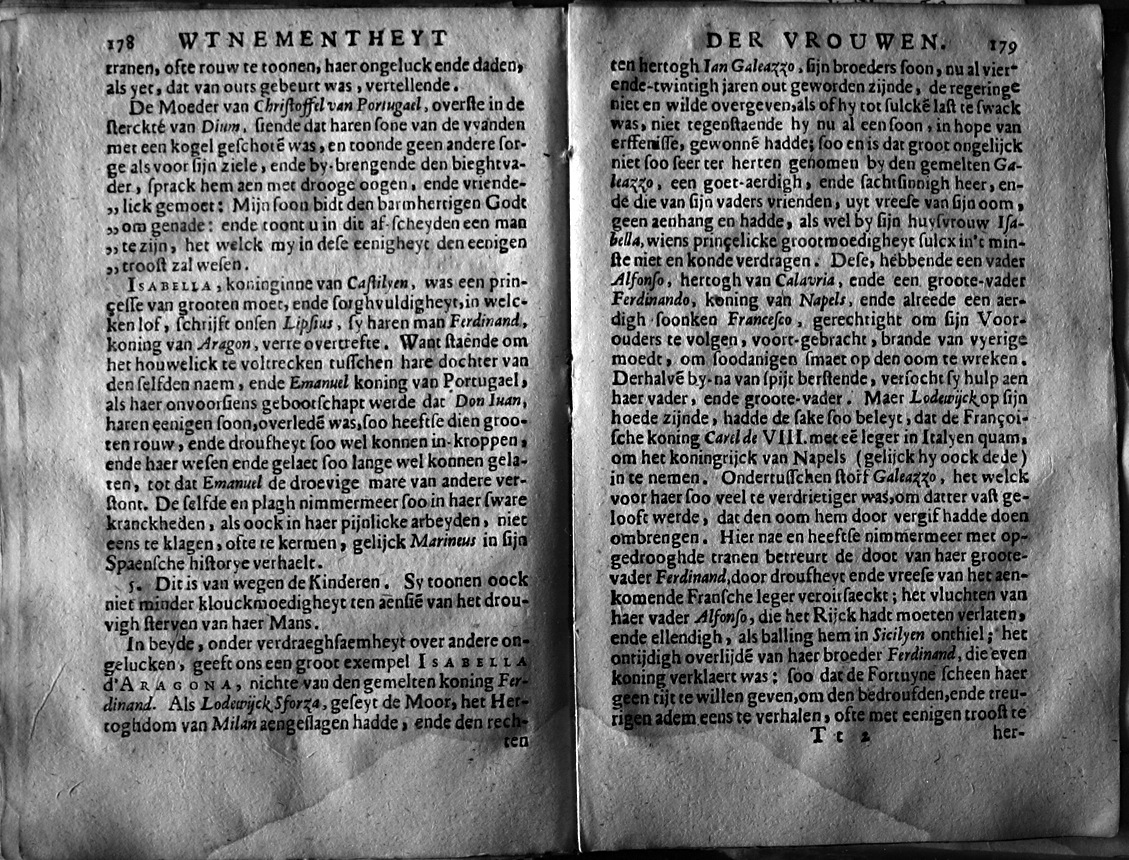 178 WTNEMENTHEYT
tranen, ofte rouw te toonen, haer ongeluck ende daden,
als yet, dat van outs gebeurt was, vertellende.
De Moeder van Chriſtoffel van Portugael, overſte in de
ſterckte van Dium, ſiende dat haren ſone van de vvanden
met een kogel geſchotē was, en toonde geen andere ſor-
ge als voor ſijn ziele, ende by-brengende den bieghtva-
der, ſprack hem aen met drooge oogen, ende vriende-
„ lick gemoet: Mijn ſoon bidt den barmhertigen Godt
„ om genade: ende toont u in dit af-ſcheyden een man
„ te zijn, het welck my in deſe eenigheyt den eenigen
„ trooſt zal weſen.
ISABELLA, koninginne van Caſtilyen, was een prin-
çeſſe van grooten moet, ende ſorghvuldigheyt, in welc-
ken lof, ſchrijft onſen Lipſius, ſy haren man Ferdinand,
koning van Aragon, verre overtrefte. Want ſtaēnde om
het houwelick te voltrecken tuſſchen hare dochter van
den ſelfden naem, ende Emanuel koning van Portugael,
als haer onvoorſiens gebootſchapt werde dat Don Iuan,
haren eenigen ſoon, overledē was, ſoo heeftſe dien groo-
ten rouw, ende droufheyt ſoo wel konnen in-kroppen,
ende haer weſen ende gelaet ſoo lange wel konnen gela-
ten, tot dat Emanuel de droevige mare van andere ver-
ſtont. De ſelfde en plagh nimmermeer ſoo in haer ſware
kranckheden, als oock in haer pijnlicke arbeyden, niet
eens te klagen, ofte te kermen, gelijck Marineus in ſijn
Spaenſche hiſtorye verhaelt.
5. Dit is van wegen de Kinderen. Sy toonen oock
niet minder klouckmoedigheyt ten aenſiē van het drou-
vigh ſterven van haer Mans.
In beyde, onder verdraeghſaemheyt over andere on-
gelucken, geeft ons een groot exempel ISABELLA
d'ARAGONA, nichte van den gemelten koning Fer-
dinand. Als Lodewijck Sforza, geſeyt de Moor, het Her-
toghdom van Milan aengeſlagen hadde, ende den rech-
ten
DER VROUWEN. 179
ten hertogh Ian Galeazzo, ſijn broeders ſoon, nu al vier-
ende-twintigh jaren out geworden zijnde, de regeringe
niet en wilde overgeven, als of hy tot ſulckē laſt te ſwack
was, niet tegenſtaende hy nu al een ſoon, in hope van
erffeniſſe, gewonnē hadde; ſoo en is dat groot ongelijck
niet ſoo ſeer ter herten genomen by den gemelten Ga-
leazzo, een goet-aerdigh, ende ſachtſinnigh heer, en-
de die van ſijn vaders vrienden, uyt vreeſe van ſijn oom,
geen aenhang en hadde, als wel by ſijn huyſvrouw Iſa-
bella, wiens prinçelicke grootmoedigheyt ſulcx in't min-
ſte niet en konde verdragen. Deſe, hebbende een vader
Alfonſo, hertogh van Calavria, ende een groote-vader
Ferdinando, koning van Napels, ende alreede een aer-
digh ſoonken Franceſco, gerechtight om ſijn Voor-
ouders te volgen, voort-gebracht, brande van vyerige
moedt, om ſoodanigen ſmaet op den oom te wreken.
Derhalvē by-na van ſpijt berſtende, verſocht ſy hulp aen
haer vader, ende groote-vader. Maer Lodewijck op ſijn
hoede zijnde, hadde de ſake ſoo beleyt, dat de Françoi-
ſche koning Carel de VIII. met eē leger in Italyen quam,
om het koningrijck van Napels (gelijck hy oock dede)
in te nemen. Ondertuſſchen ſtorf Galeazzo, het welck
voor haer ſoo veel te verdrietiger was, om datter vaſt ge-
looft werde, dat den oom hem door vergif hadde doen
ombrengen. Hier nae en heeftſe nimmermeer met op-
gedrooghde tranen betreurt de doot van haer groote-
vader Ferdinand, door droufheyt ende vreeſe van het aen-
komende Franſche leger veroirſaeckt; het vluchten van
haer vader Alfonſo, die het Rijck hadt moeten verlaten,
ende ellendigh, als balling hem in Sicilyen onthiel; het
ontijdigh overlijdē van haer broeder Ferdinand, die even
koning verklaert was: ſoo dat de Fortuyne ſcheen haer
geen tijt te willen geven, om den bedroufden, ende treu-
rigen adem eens te verhalen, ofte met eenigen trooſt te
T t 2 her-